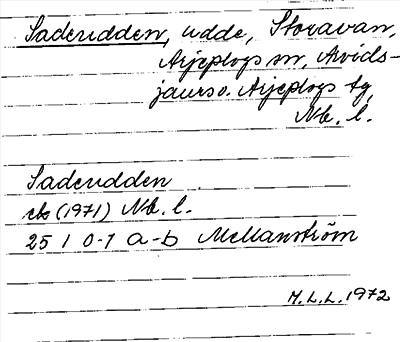 Sadeudden, udde, Storavan,
Arjeplogs sn, Arvids-
jaurs o. Arjeplogs tg,
Nb. l.
Sadeudden
ek (1971) Nb. l.
25 I 0-1 a-b Mellanström
M.L.L. 1972